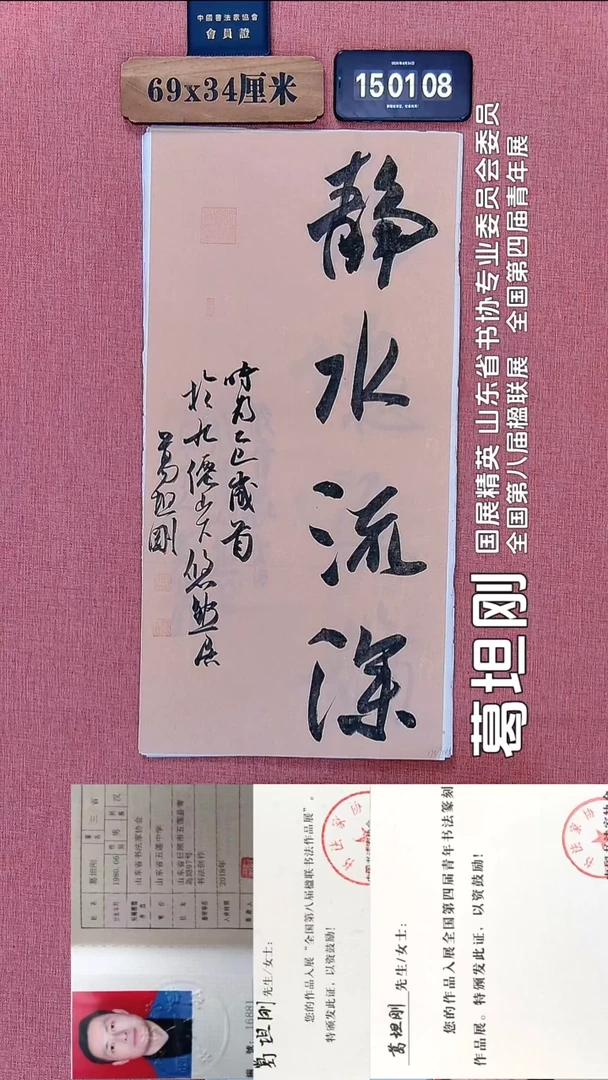 中國書法家協會
會員證
69x34厘米
15 01 08
静水流深
时为乙巳岁首
於九僊山下悠然居
葛坦刚
国展精英 山东省书协专业委员会委员
全国第八届楹联展 全国第四届青年展
葛坦刚
姓名 葛坦刚
性别 男
民族 汉
山东省书法家协会
山东省五莲中学
2018年
16881
葛坦刚 先生/女士:
您的作品入展“全国第八届楹联书法作品展”。
特颁发此证,以资鼓励!
葛坦刚 先生/女士:
您的作品入展全国第四届青年书法篆刻
作品展。特颁发此证,以资鼓励!